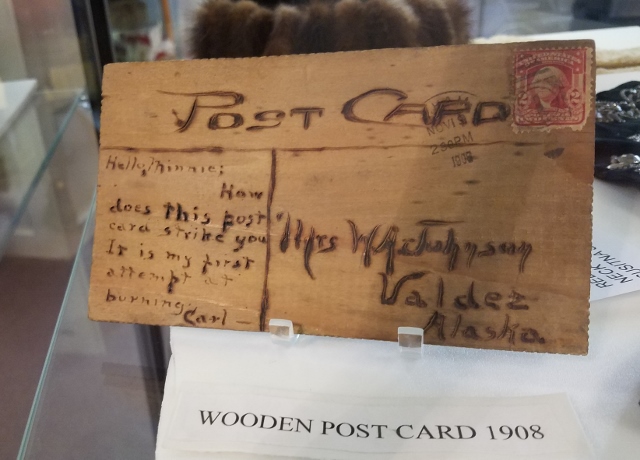 POST CARD
NOV
2 30 PM
1908
Hello, Minnie;
How
does this post
card strike you
It is my first
attempt at
burning
Carl —
Mrs Johnson
Valdez
Alaska.
WOODEN POST CARD 1908
NECK